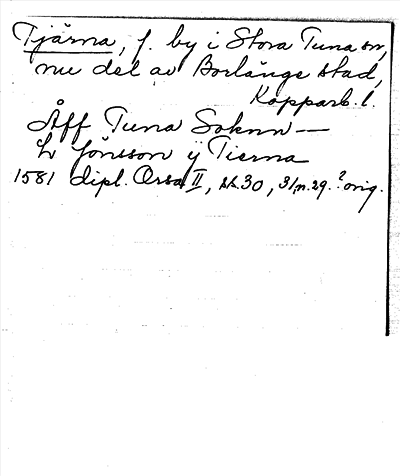 Tjärna, f. by i Stora Tuna sn,
nu del av Borlänge stad,
Kopparb. l.
Åff Tuna Soknn —
L Jönsson ÿ Tierna
1581 dipl. Orsa II, bl. 30, 31, n. 29. ? orig.